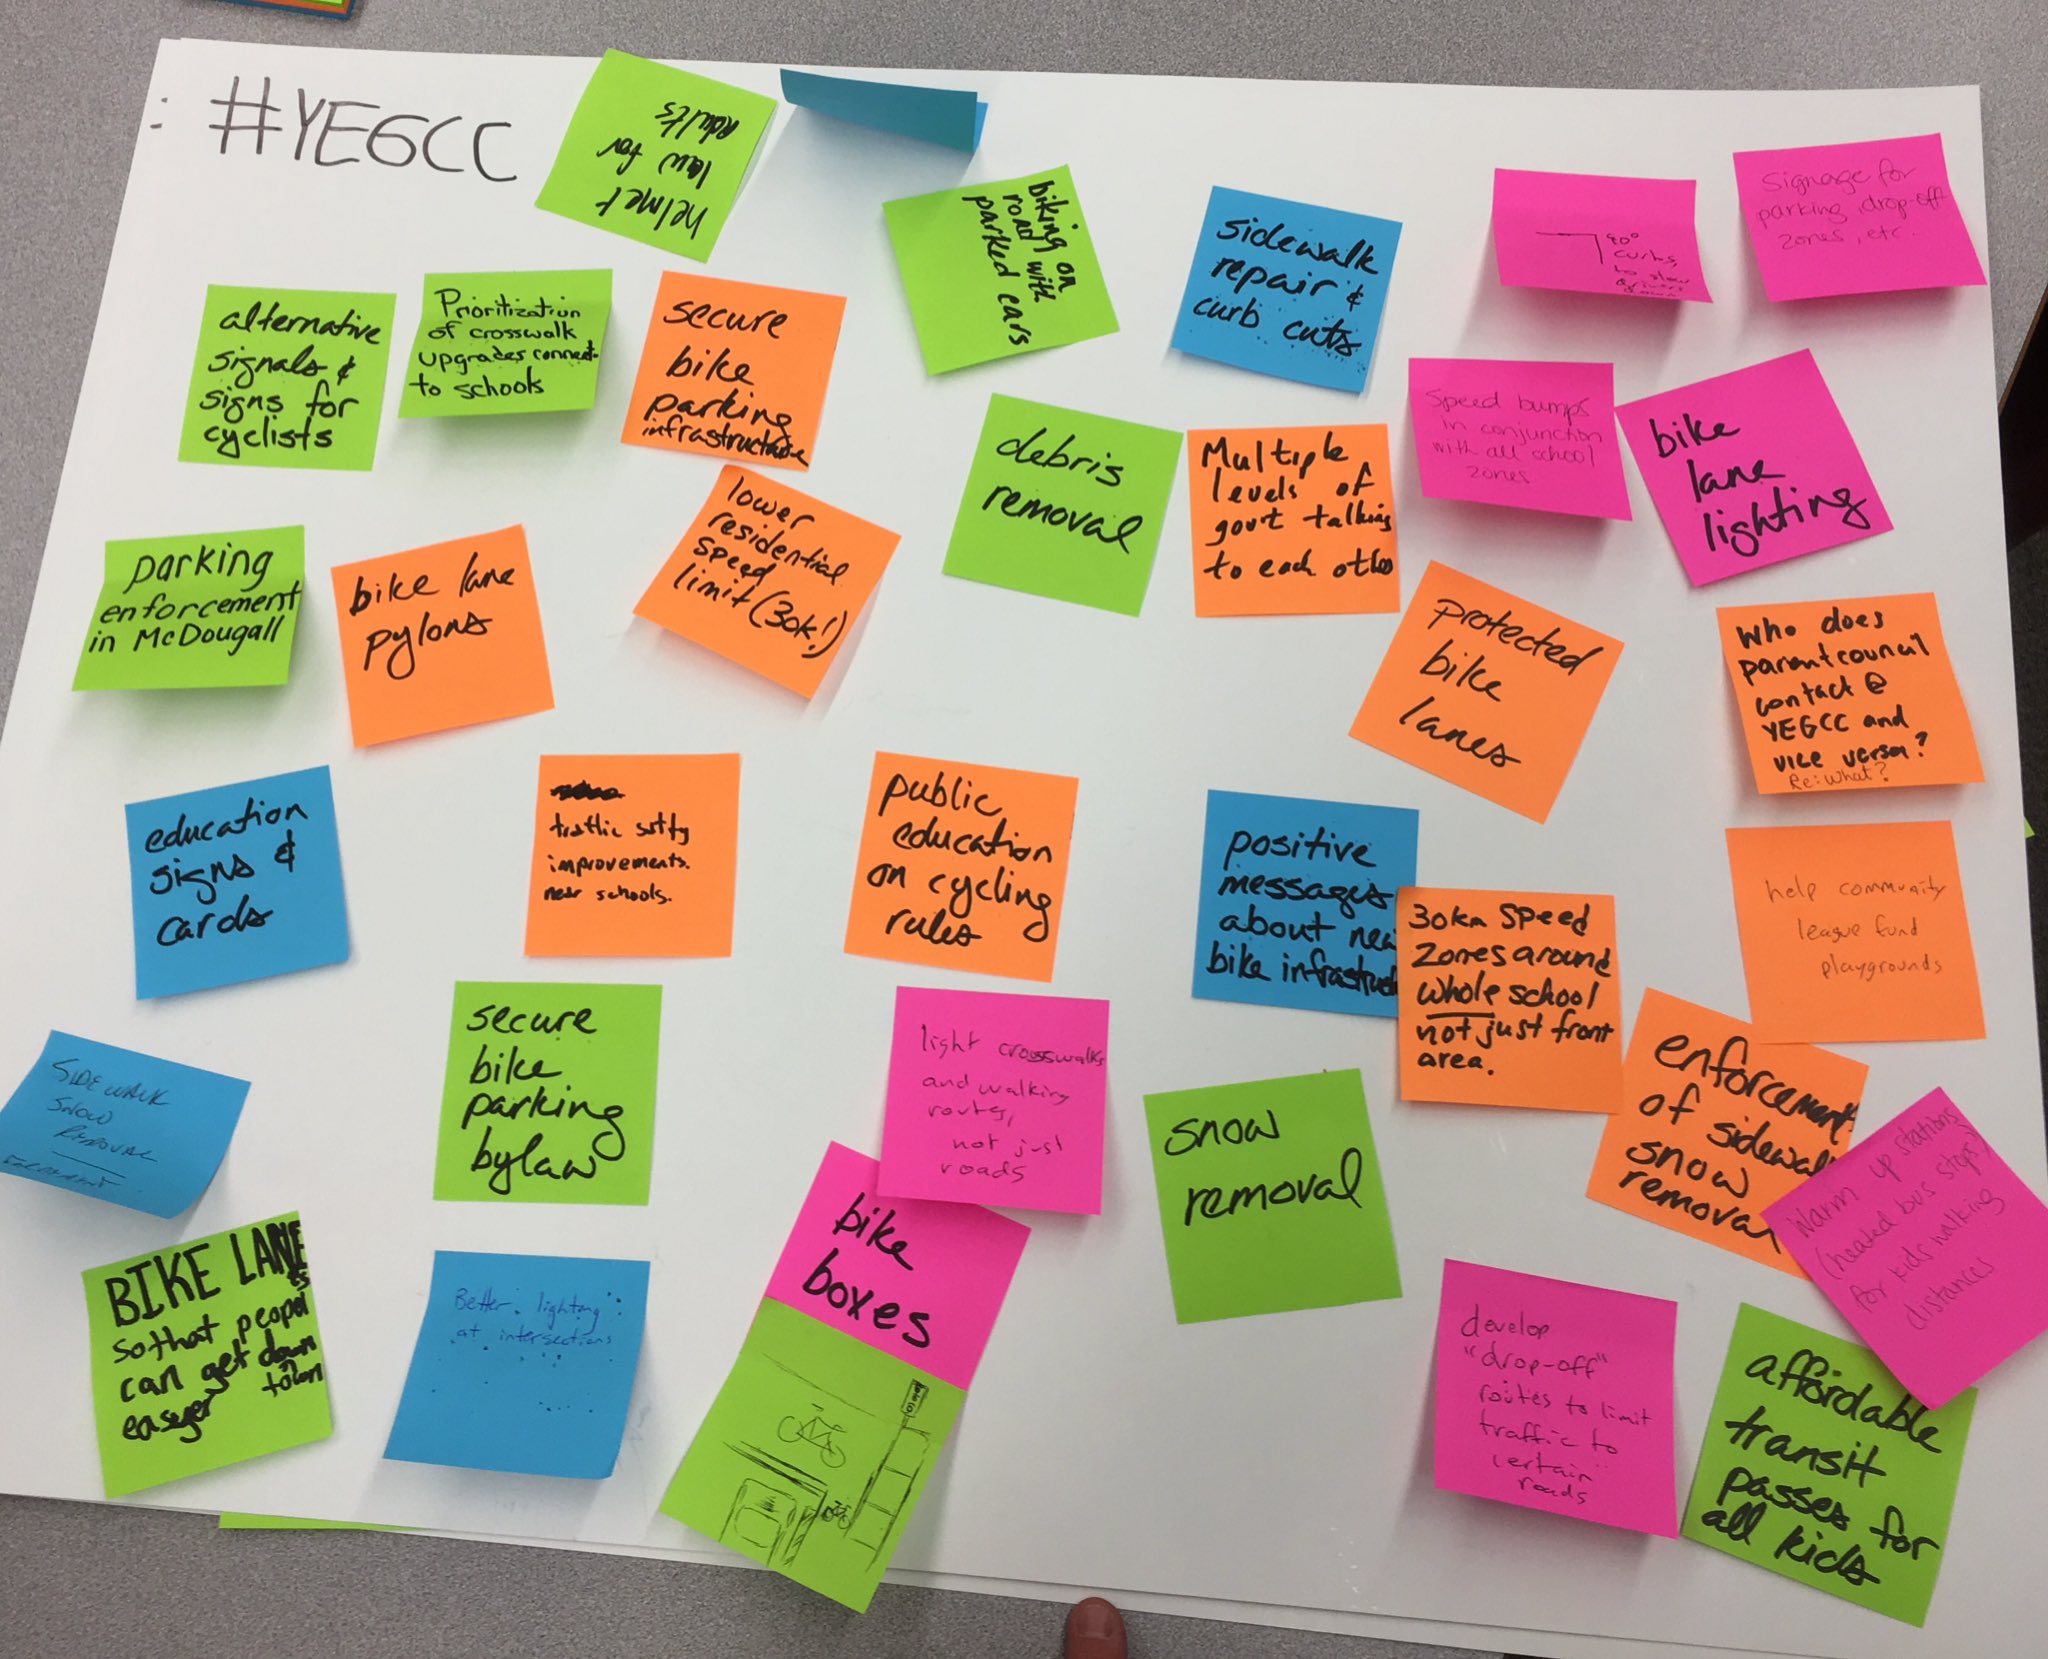 : #YEGCC
helmet
law for
adults
biking on
road with
parked cars
sidewalk
repair &
curb cuts
90°
curbs,
to slow
drivers
down
Signage for
parking, drop-off
zones, etc.
alternative
signals &
signs for
cyclists
Prioritization
of crosswalk
upgrades connect
to schools
secure
bike
parking
infrastructure
debris
removal
Multiple
levels of
gov't talking
to each other
Speed bumps
in conjunction
with all school
zones
bike
lane
lighting
parking
enforcement
in McDougall
bike lane
pylons
lower
residential
speed
limit (30k!)
protected
bike
lanes
Who does
parent council
contact @
YEGCC and
vice versa?
Re: What?
education
signs &
cards
traffic safty
improvements.
near schools.
public
education
on cycling
rules
positive
messages
about new
bike infrastruct
30km Speed
Zones around
whole school
not just front
area.
help community
league fund
playgrounds
SIDEWALK
SNOW
REMOVAL
secure
bike
parking
bylaw
light crosswalks
and walking
routes,
not just
roads
snow
removal
enforcement
of sidewalk
snow
removal
Warm up stations
(heated bus stops)
for kids walking
distances
BIKE LANEs
so that peopel
can get down
easyer town
Better lighting
at intersections
bike
boxes
develop
"drop-off"
routes to limit
traffic to
certain
roads
affordable
transit
passes for
all kids